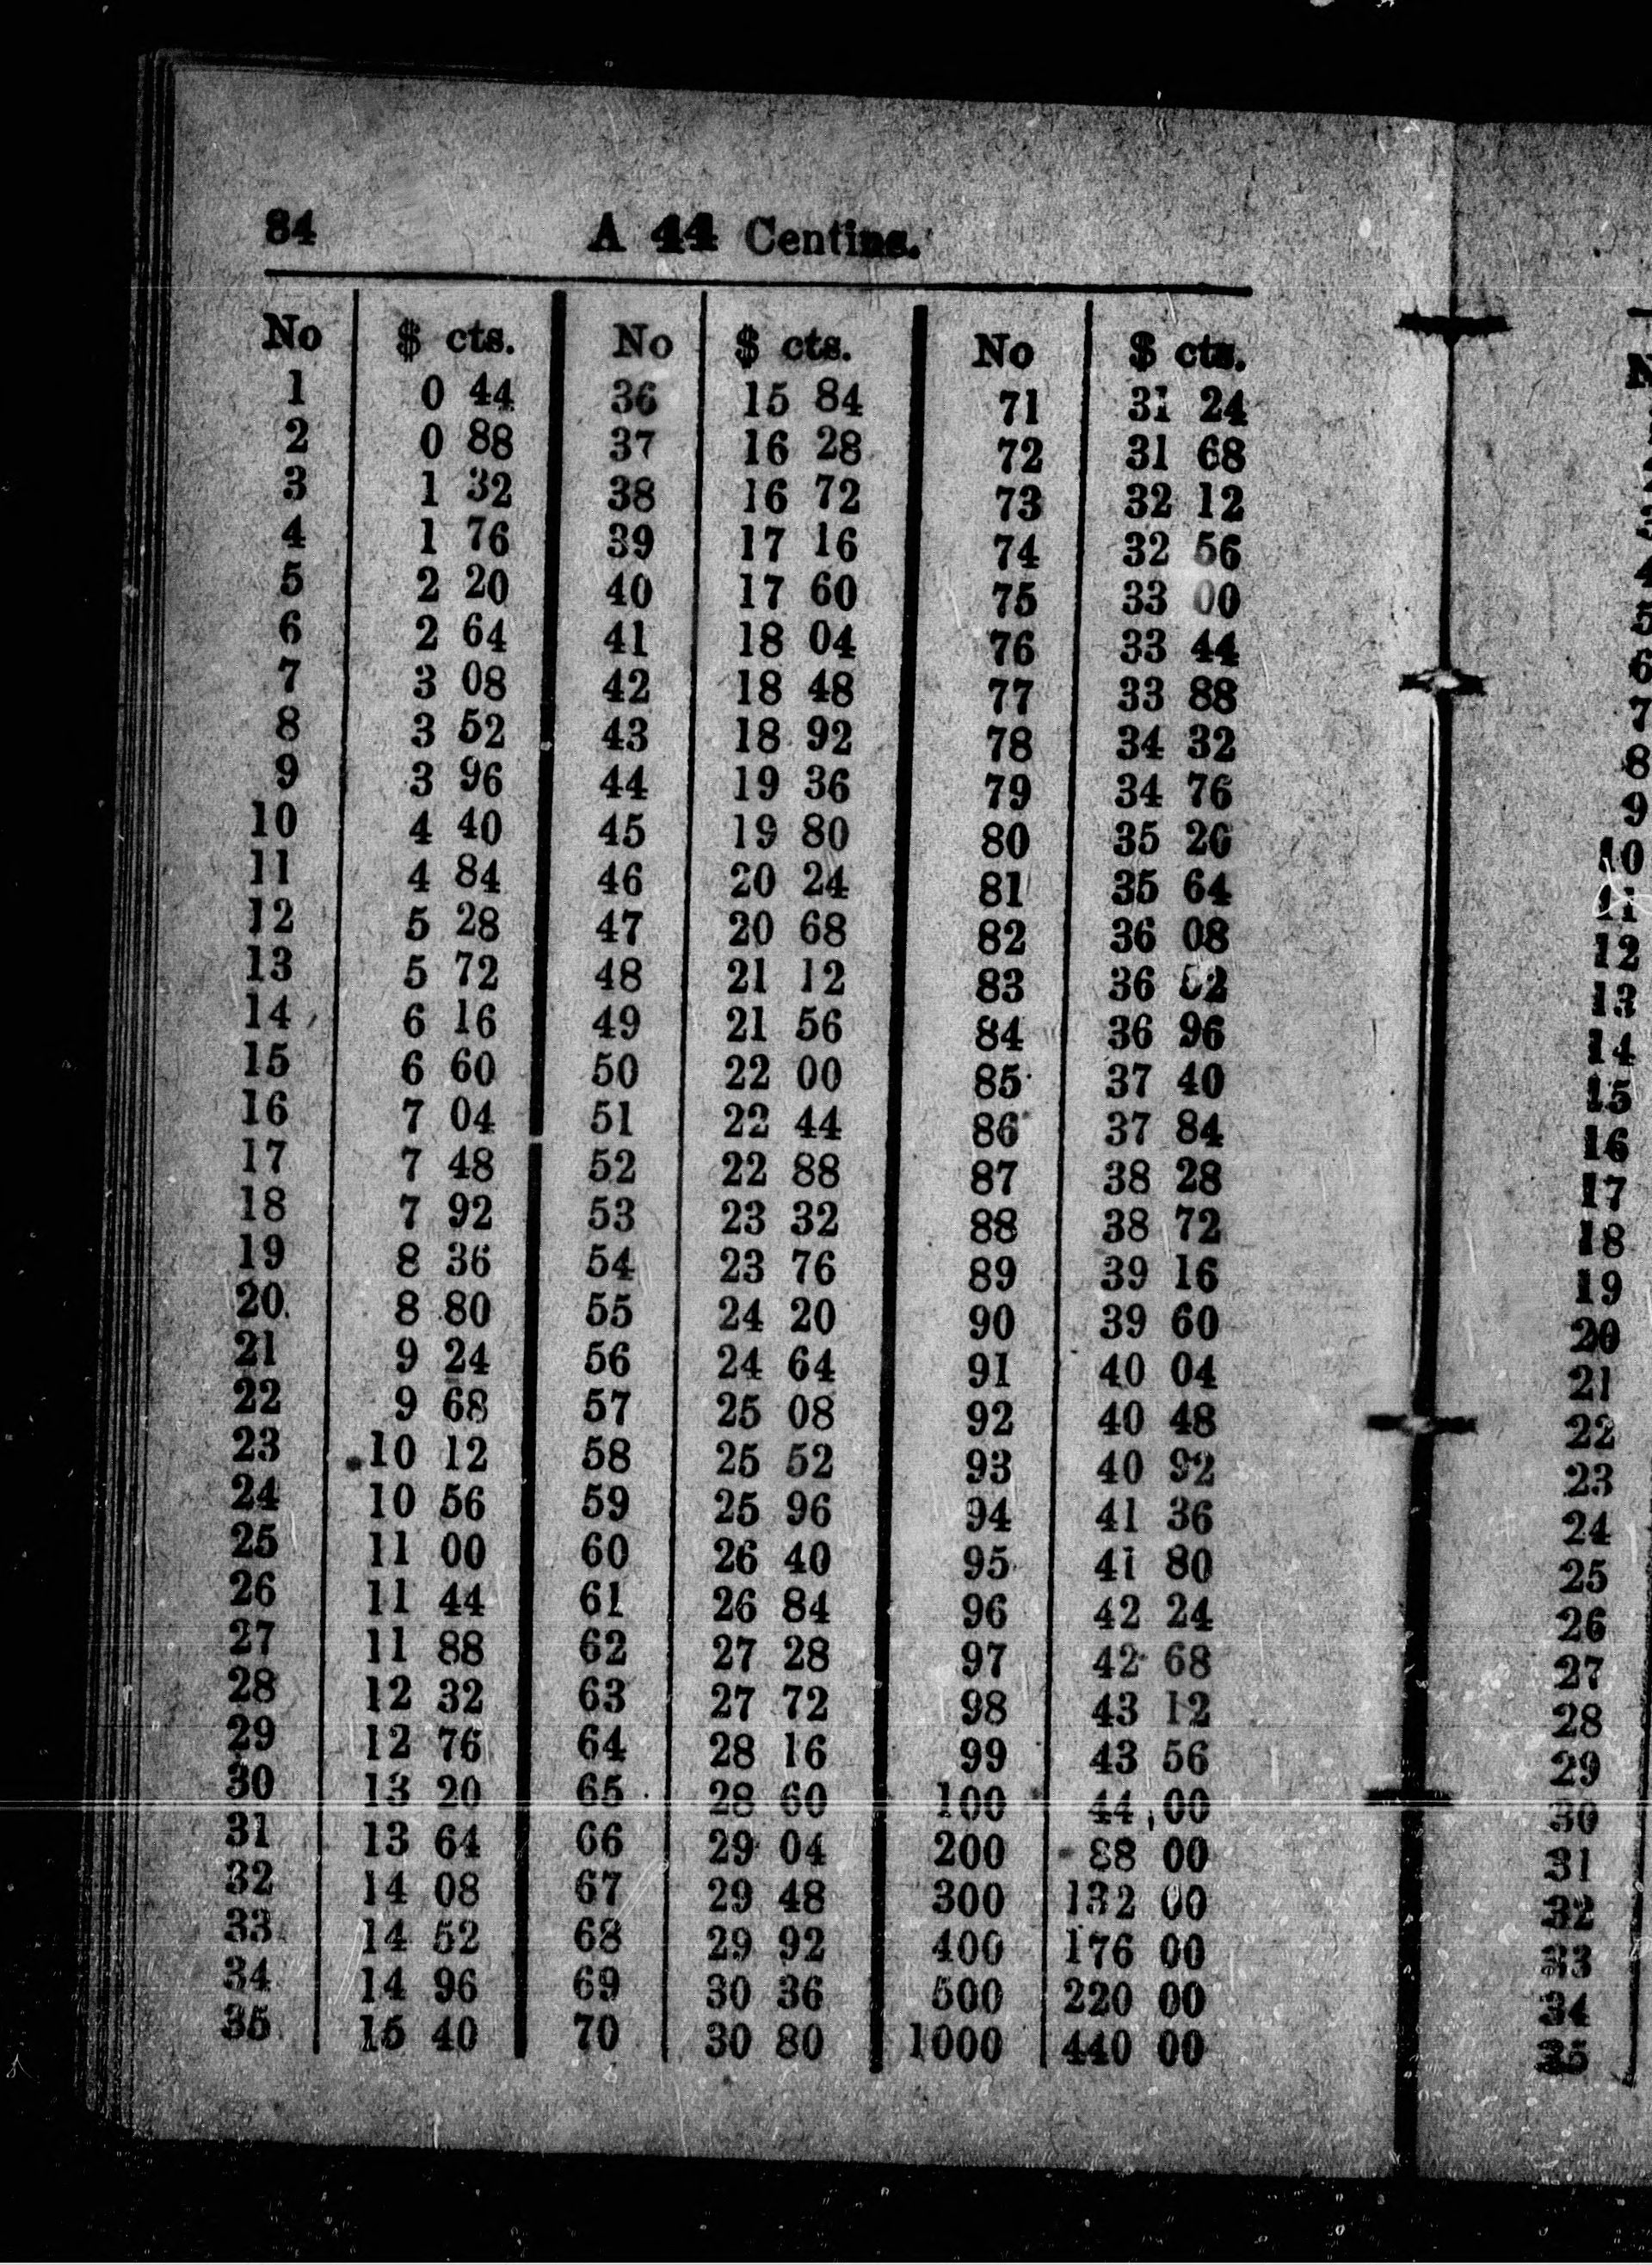 84 A 44 Centins.
No $ cts. No $ cts. No $ cts.
1 0 44 36 15 84 71 31 24
2 0 88 37 16 28 72 31 68
3 1 32 38 16 72 73 32 12
4 1 76 39 17 16 74 32 56
5 2 20 40 17 60 75 33 00
6 2 64 41 18 04 76 33 44
7 3 08 42 18 48 77 33 88
8 3 52 43 18 92 78 34 32
9 3 96 44 19 36 79 34 76
10 4 40 45 19 80 80 35 20
11 4 84 46 20 24 81 35 64
12 5 28 47 20 68 82 36 08
13 5 72 48 21 12 83 36 52
14 6 16 49 21 56 84 36 96
15 6 60 50 22 00 85 37 40
16 7 04 51 22 44 86 37 84
17 7 48 52 22 88 87 38 28
18 7 92 53 23 32 88 38 72
19 8 36 54 23 76 89 39 16
20 8 80 55 24 20 90 39 60
21 9 24 56 24 64 91 40 04
22 9 68 57 25 08 92 40 48
23 10 12 58 25 52 93 40 92
24 10 56 59 25 96 94 41 36
25 11 00 60 26 40 95 41 80
26 11 44 61 26 84 96 42 24
27 11 88 62 27 28 97 42 68
28 12 32 63 27 72 98 43 12
29 12 76 64 28 16 99 43 56
30 13 20 65 28 60 100 44 00
31 13 64 66 29 04 200 88 00
32 14 08 67 29 48 300 132 00
33 14 52 68 29 92 400 176 00
34 14 96 69 30 36 500 220 00
35 15 40 70 30 80 1000 440 00
5
6
7
8
9
10
11
12
13
14
15
16
17
18
19
20
21
22
23
24
25
26
27
28
29
30
31
32
33
34
35